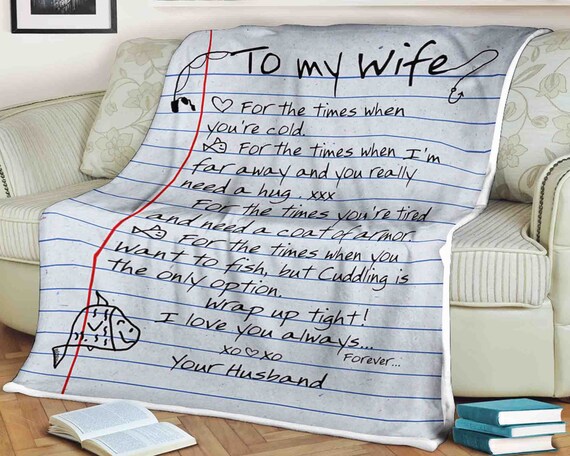 To my Wife
For the times when
you're cold.
For the times when I'm
far away and you really
need a hug... xxx
For the times you're tired
and need a coat of armor.
For the times when you
want to fish, but Cuddling is
the only option.
Wrap up tight!
I love you always...
Forever...
xo♡xo
Your Husband